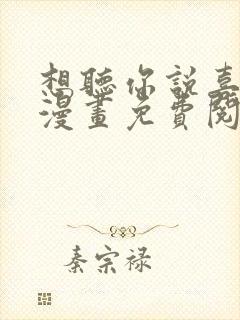 想聽你說喜
漫畫免費閱
秦宗禄